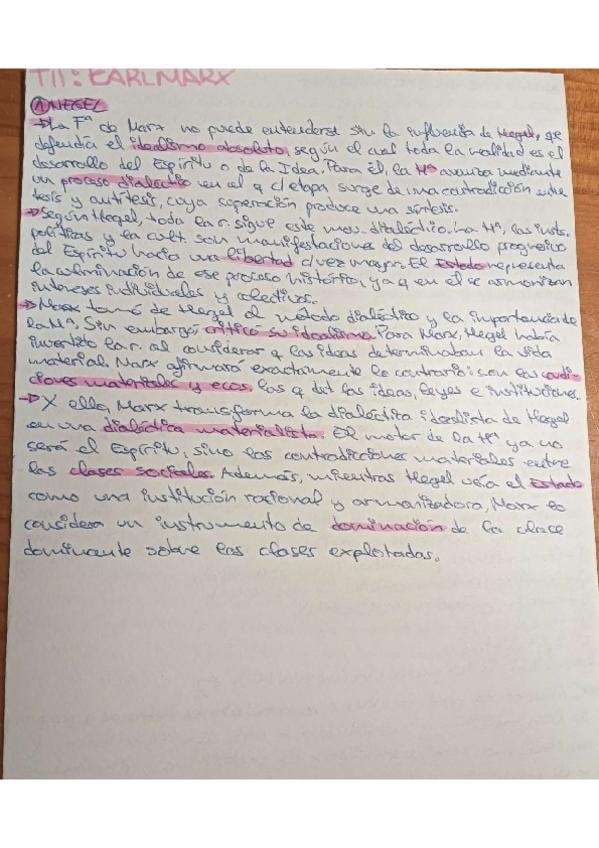 T11: KARL MARX
① HEGEL
→ La Fª de Marx no puede entenderse sin la influencia de Hegel, qe
defendía el idealismo absoluto, según el cual toda la realidad es el
desarrollo del Espíritu o de la Idea. Para él, la Hª avanza mediante
un proceso dialéctico en el q c/etapa surge de una contradicción entre
tesis y antítesis, cuya superación produce una síntesis.
→ Según Hegel, toda la r. sigue este mov. dialéctico. La Hª, las insts.
políticas y la cult. son manifestaciones del desarrollo progresivo
del Espíritu hacia una libertad c/vez mayor. El Estado representa
la culminación de ese proceso histórico, ya q en el se armonizan
intereses individuales y colectivos.
→ Marx tomó de Hegel el método dialéctico y la importancia de
la Hª. Sin embargo, criticó su idealismo. Para Marx, Hegel había
invertido la r. al considerar q las ideas determinaban la vida
material. Marx afirmará exactamente lo contrario: son las condi-
ciones materiales y ecos. las q det las ideas, leyes e instituciones.
→ X ello, Marx transforma la dialéctica idealista de Hegel
en una dialéctica materialista. El motor de la Hª ya no
será el Espíritu, sino las contradicciones materiales entre
las clases sociales. Además, mientras Hegel veía el Estado
como una institución racional y armonizadora, Marx lo
considera un instrumento de dominación de la clase
dominante sobre las clases explotadas.